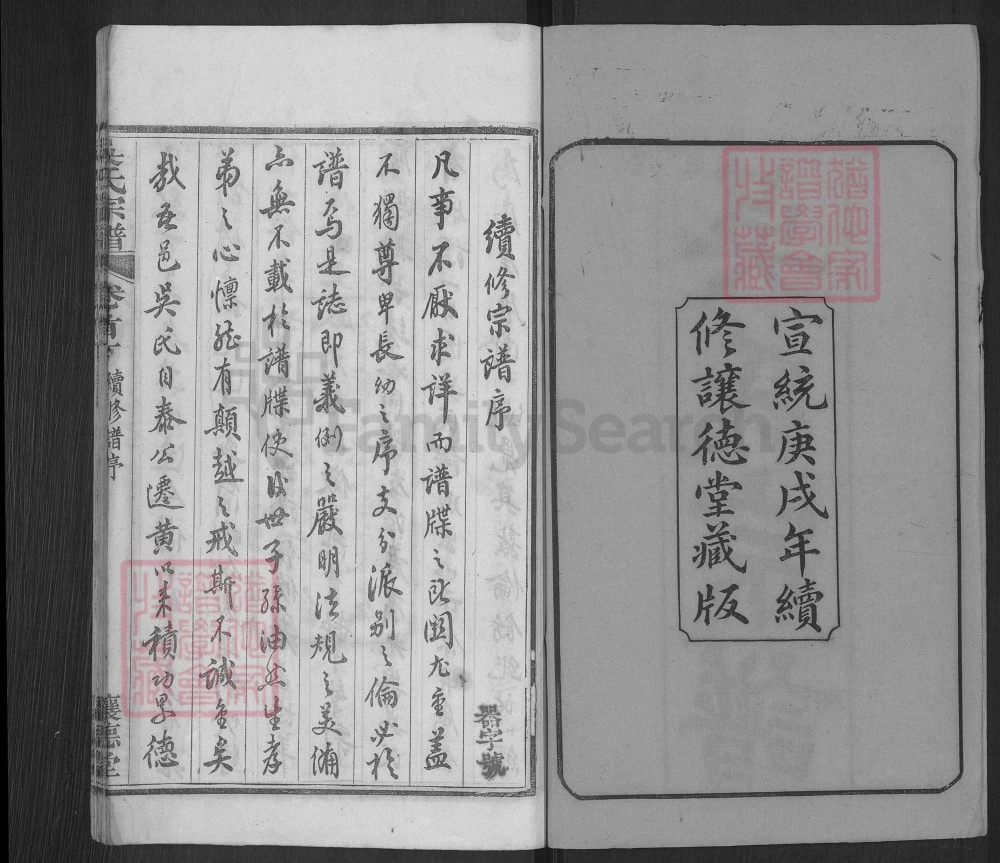 宣統庚戌年續
修讓德堂藏版
猶他家
譜學會
收藏
續修宗譜序
器字號
凡事不厭求詳而譜牒之所關尤重蓋
不獨尊卑長幼之序支分派別之倫必於
譜焉是誌即義例之嚴明法規之美備
亦無不載於譜牒使後世子孫油然生孝
弟之心懍然有顛越之戒斯不誠重矣
哉吾邑吳氏自泰公遷黃以來積功累德
吳氏宗譜
卷首下
續修譜序
讓德堂
猶他家
譜學會
收藏
FamilySearch